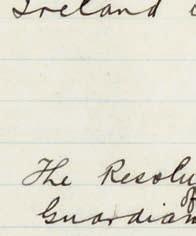 Ireland
The Resolu
Guardian